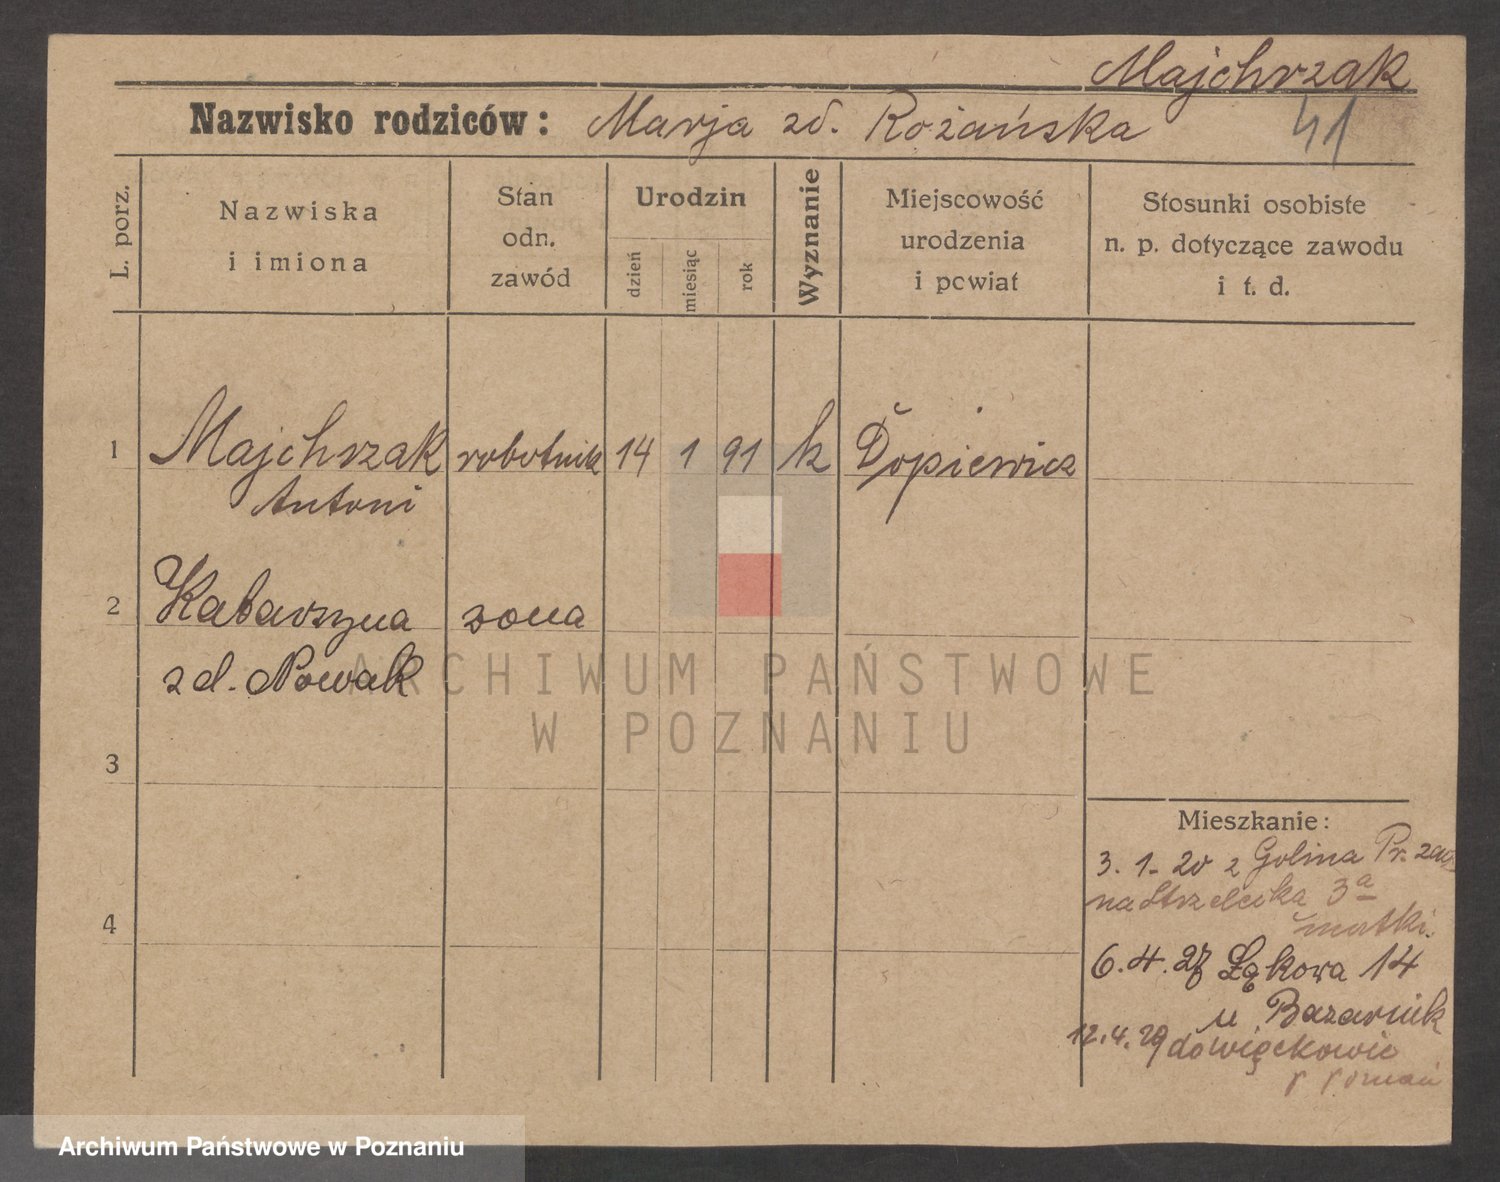 Majchrzak
Nazwisko rodziców: Marja zd. Rożańska
41
L. porz.
Nazwiska
i imiona
Stan
odn.
zawód
Urodzin
dzień
miesiąc
rok
Wyznanie
Miejscowość
urodzenia
i powiat
Stosunki osobiste
n. p. dotyczące zawodu
i t. d.
1 Majchrzak robotnik 14 1 91 k Dopiewicz
Antoni
2 Katarzyna zona
zd. Nowak
ARCHIWUM PAŃSTWOWE
W POZNANIU
3
Mieszkanie:
3. 1. 20 z Golina Pr.
na Strzelecka 3a
matki.
4
6. 4. 27 Łąkowa 14
u Bazarnik
12.4.29 do Więckowic
p
Archiwum Państwowe w Poznaniu